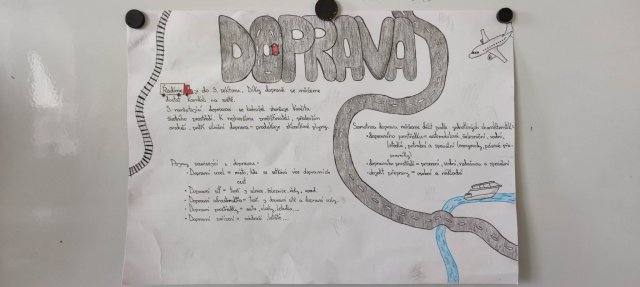 DOPRAVA
Řadíme ji do 3. sektoru. Díky dopravě se můžeme
dostat kamkoli na světě.
S narůstající dopravou se bohužel zhoršuje kvalita
životního prostředí. K nejhorším znečišťovatelům, především
ovzduší, patří silniční doprava - produkuje skleníkové plyny.
Pojmy související s dopravou:
• Dopravní uzel = místo, kde se setkává více dopravních
cest
• Dopravní síť = tvoří ji silnice, železnice, řeky,
• Dopravní infrastruktura = tvoří ji dopravní sítě a dopravní uzly.
• Dopravní prostředky = auta, vlaky, letadla...
• Dopravní zařízení = nádraží, letiště...
Samotnou dopravu můžeme dělit podle jednotlivých
• dopravního prostředku = automobilová, železniční, vodní,
letecká, potrubní a speciální (lanovky, pásové
)
• dopravního prostředí = pozemní, vodní, vzdušnou a speciální
• objekt přepravy = osobní a nákladní